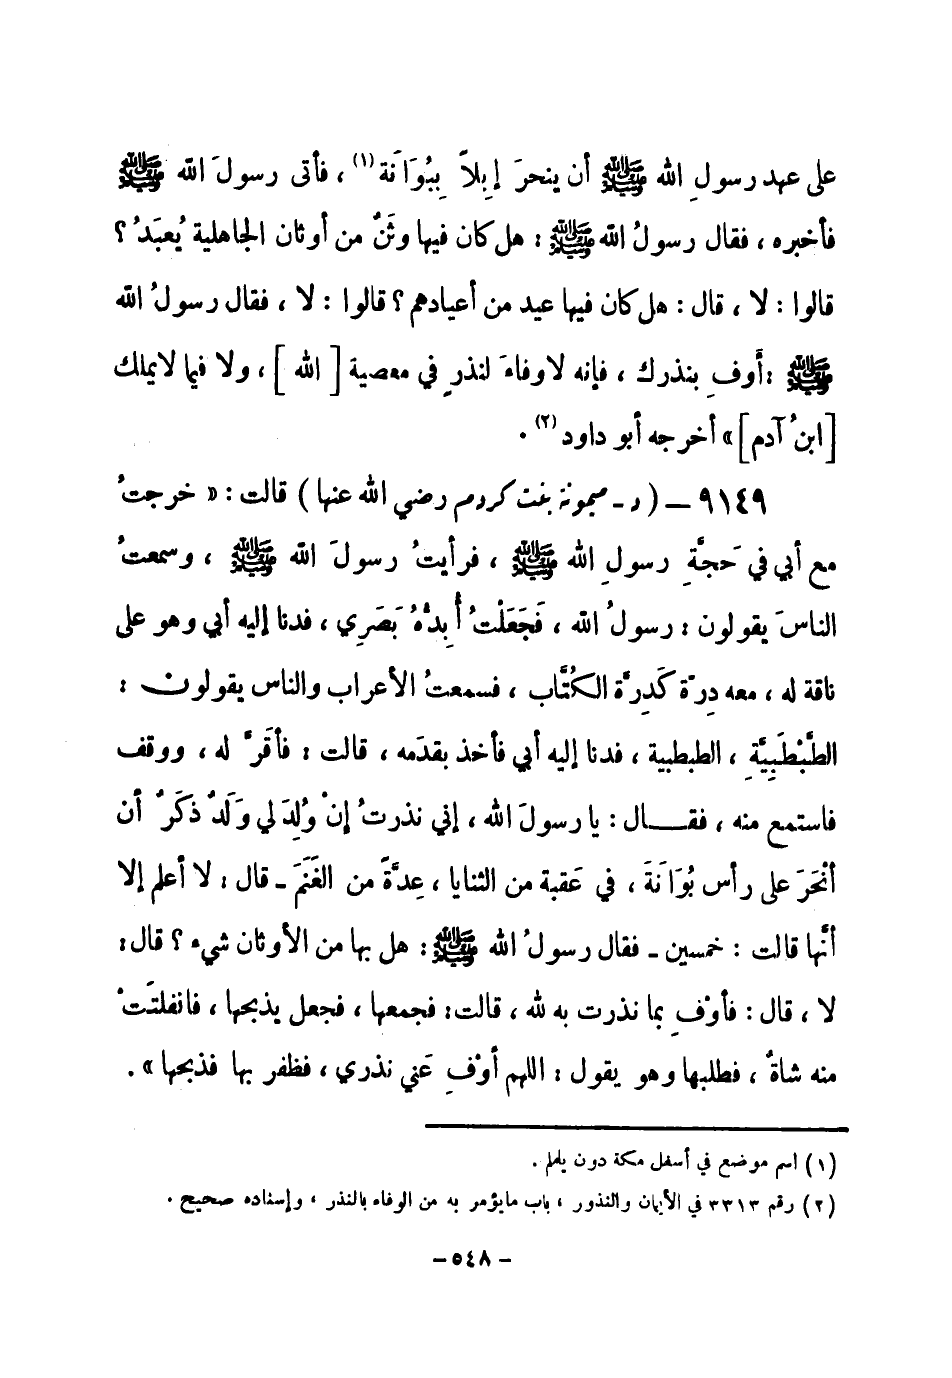 على عهد رسولِ الله ﷺ أن ينحرَ إبلاً بِبُوَانَة (١) ، فأتى رسولَ الله ﷺ
فأخبره ، فقال رسولُ الله ﷺ : هل كان فيها وثَنٌ من أوثان الجاهلية يُعبَدُ ؟
قالوا : لا ، قال : هل كان فيها عيد من أعيادهم ؟ قالوا : لا ، فقال رسولُ الله
ﷺ : أَوفِ بنذرك ، فإنه لاوفاءَ لنذرٍ في معصية [ الله ] ، ولا فيما لايملك
[ ابنُ آدم ] » أخرجه أبو داود (٢) .
٩١٤٩ – ( د - ميمونة بنت كردم رضي الله عنها ) قالت : « خرجتُ
مع أبي في حَجَّةِ رسولِ الله ﷺ ، فرأيتُ رسولَ الله ﷺ ، وسمعتُ
الناسَ يقولون : رسولُ الله ، فَجَعَلْتُ أُبِدُّهُ بَصَرِي ، فدنا إليه أبي وهو على
ناقة له ، معه دِرَّة كَدِرَّة الكُتَّاب ، فسمعتُ الأعراب والناس يقولون :
الطَّبْطَبِيَّةِ ، الطبطبية ، فدنا إليه أبي فأخذ بقدَمه ، قالت : فأقَرَّ له ، ووقف
فاستمع منه ، فقال : يا رسولَ الله ، إني نذرتُ إنْ وُلِدَ لي وَلَدٌ ذَكَرٌ أن
أنْحَرَ على رأس بُوَانَةَ ، في عَقبة من الثنايا ، عِدَّةً من الغَنَمَ - قال : لا أعلم إلا
أنَّها قالت : خمسين - فقال رسولُ الله ﷺ : هل بها من الأوثان شيء ؟ قال :
لا ، قال : فأوْفِ بما نذرت به لله ، قالت : فجمعها ، فجعل يذبحها ، فانفلتَتْ
منه شاةٌ ، فطلبها وهو يقول : اللهم أوْفِ عَني نذري ، فظفر بها فذبحها » .
(١) اسم موضع في أسفل مكة دون يلملم .
(٢) رقم ٣٣١٣ في الأيمان والنذور ، باب مايؤمر به من الوفاء بالنذر ، وإسناده صحيح .
– ٥٤٨ –